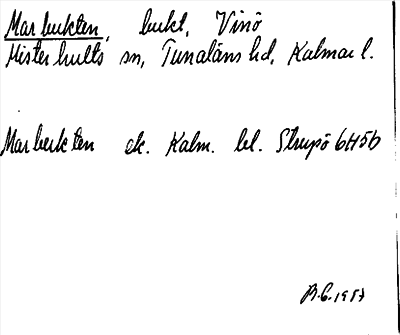 Marbukten, bukt, Vinö
Misterhults sn, Tunaläns hd, Kalmar l.
Marbukten ek. Kalm. bl. Strupö 6H5b
B.G. 1987